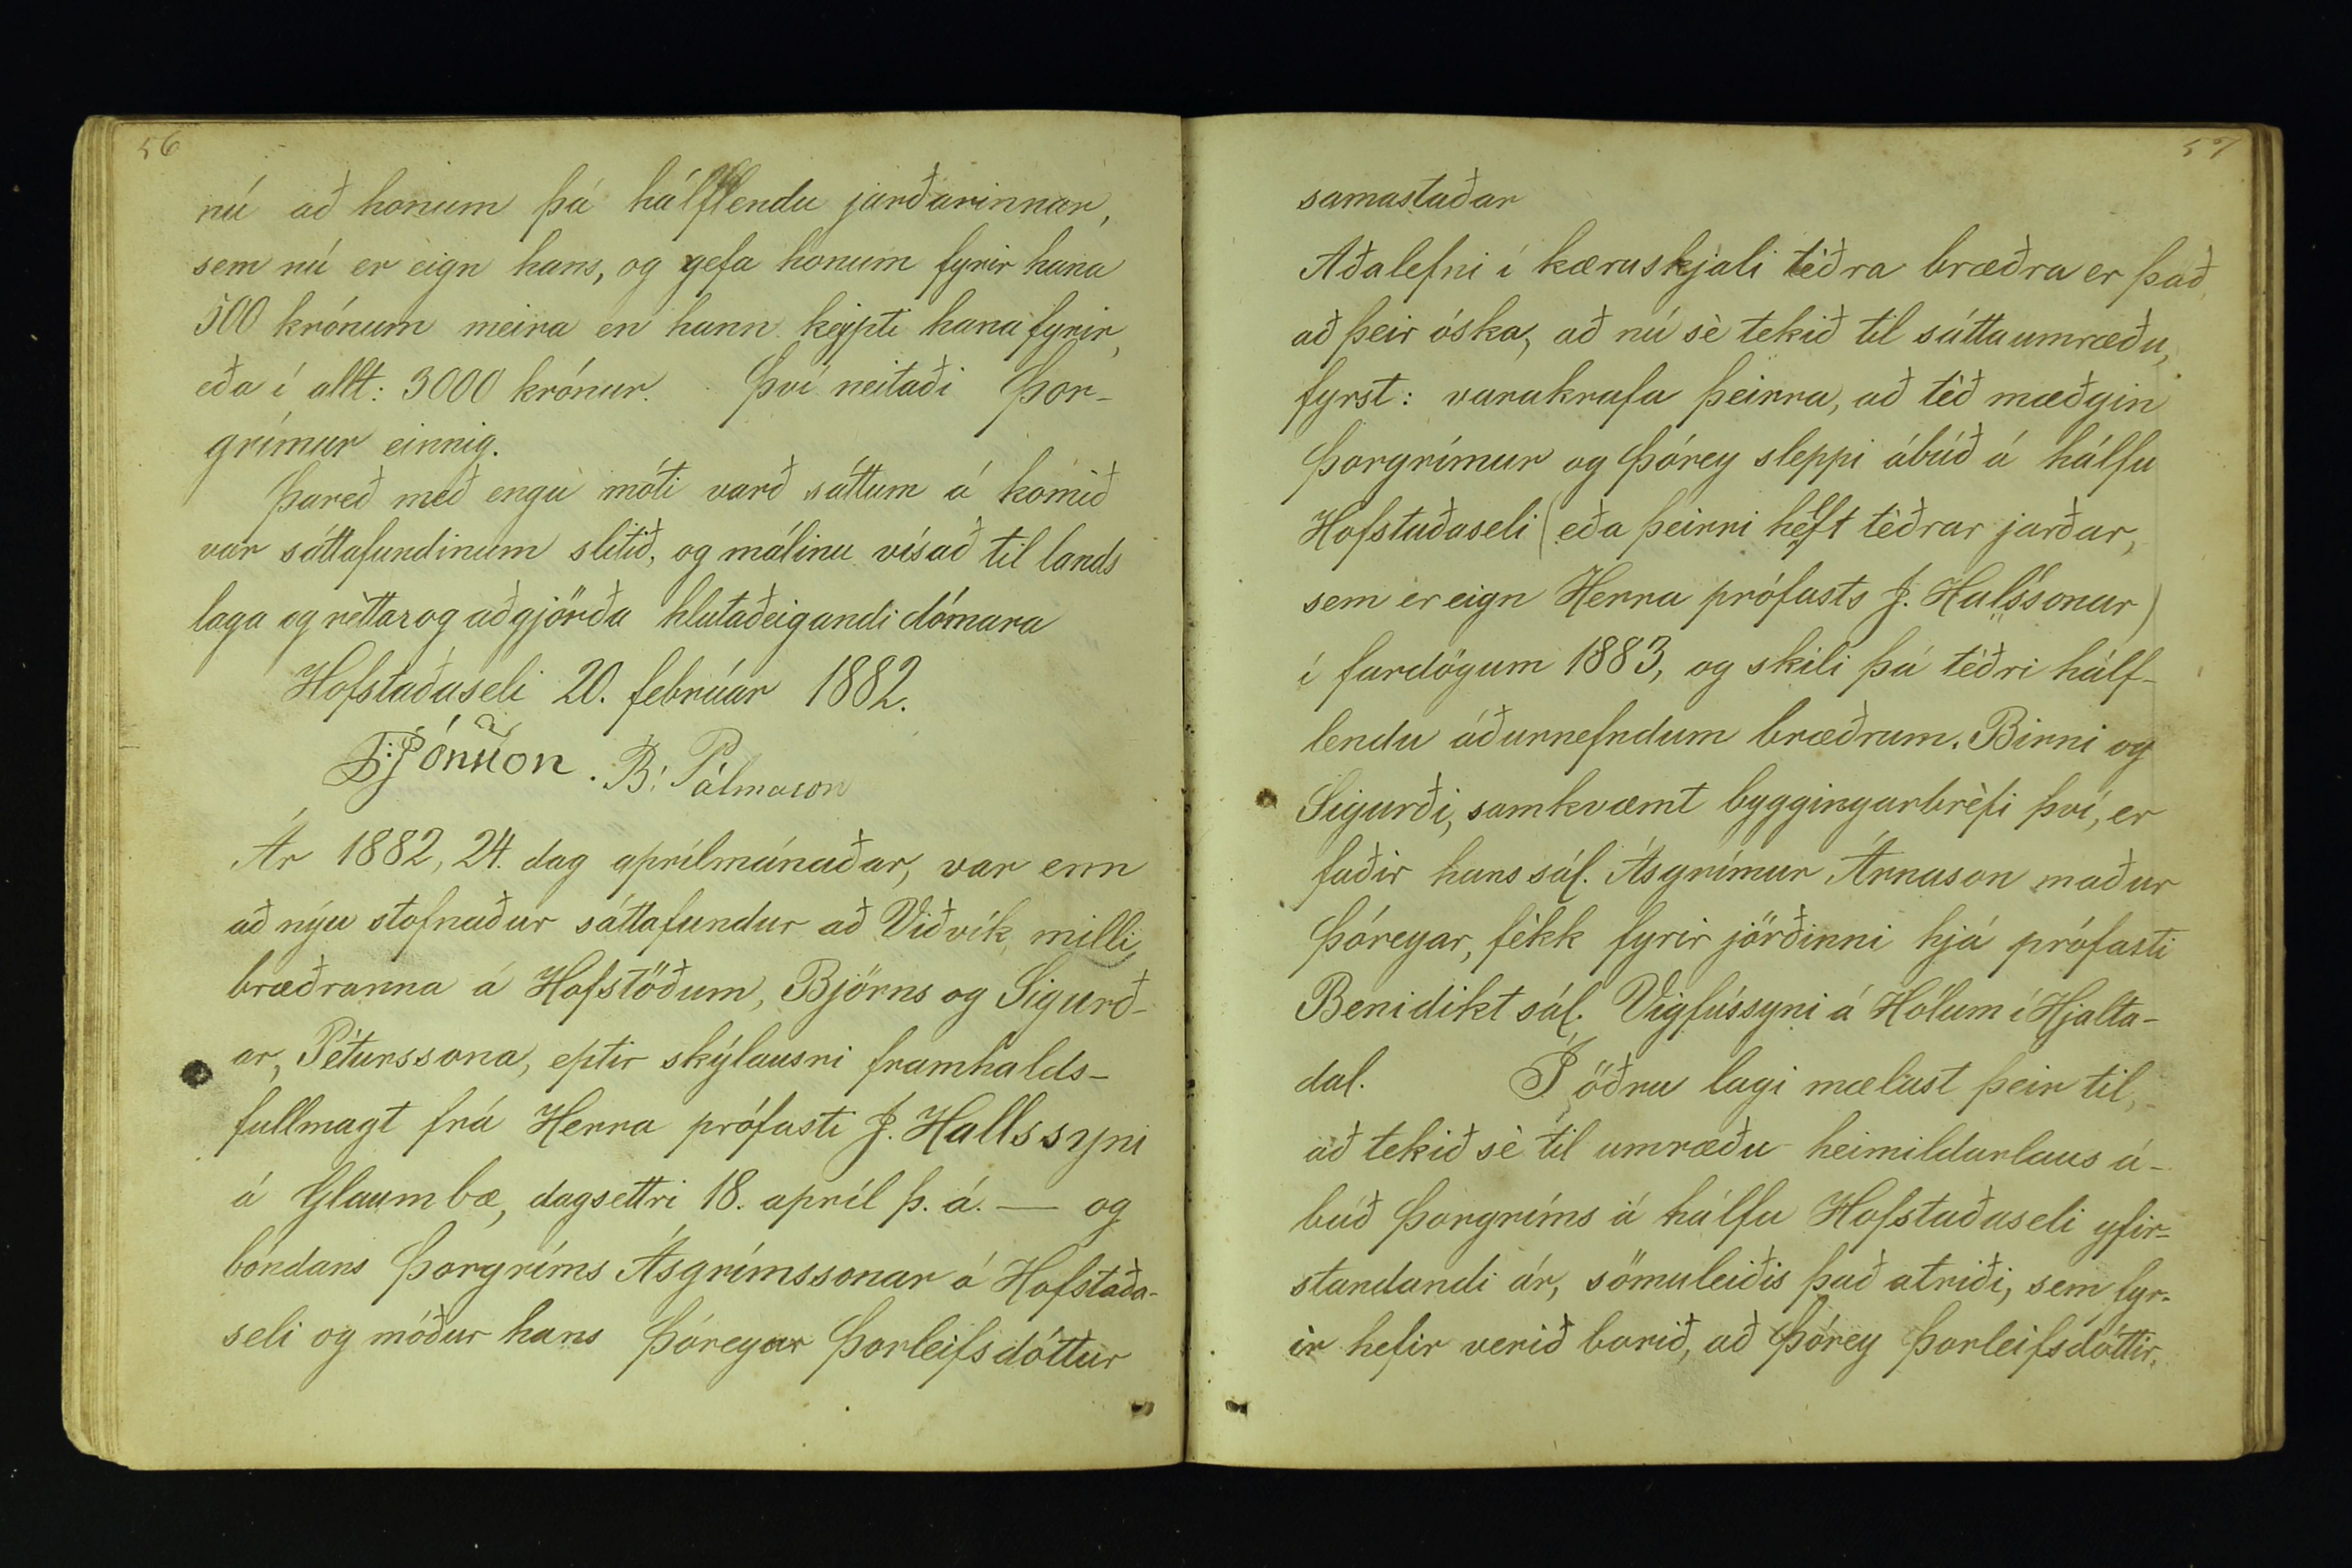 56
nú að honum þá hálflendu jarðarinnar,
sem nú er eign hans, og gefa honum fyrir hana
500 krónum meira en hann keypti hana fyrir,
eða í allt: 3000 krónur. Því neitaði Þor-
grímur einnig.
Þareð með engu móti varð sáttum á komið
var sáttafundinum slitið, og málinu vísað til lands
laga og rèttar og aðgjörða hlutaðeigandi dómara
Hofstaðaseli 20. febrúar 1882.
Jónsson. B. Pálmason
Ár 1882, 24. dag aprílmánaðar, var enn
að nýu stofnaður sáttafundur að Viðvík, milli
bræðranna á Hofstöðum, Björns og Sigurð-
ar, Péturssona, eptir skýlausri framhalds-
fullmagt frá Herra prófasti J. Hallssyni
á Glaumbæ, dagsettri 18. apríl þ. á. — og
bóndans Þorgríms Ásgrímssonar á Hofstaða-
seli og móður hans Þóreyar Þorleifsdóttur
57
samastaðar
Aðalefni í kæruskjali tèðra bræðra er það,
að þeir óska, að nú sè tekið til sáttaumræðu,
fyrst: varakrafa þeirra, að tèð mæðgin
Þorgrímur og Þórey sleppi ábúð á hálfu
Hofstaðaseli (eða þeirri helft tèðrar jarðar,
sem er eign Herra prófasts J. Halssonar)
í fardögum 1883, og skili þá tèðri hálf-
lendu áðurnefndum bræðrum, Birni og
Sigurði, samkvæmt byggingarbrèfi því, er
faðir hans sál. Ásgrímur Árnason maður
Þóreyar, fèkk fyrir jörðinni hjá prófasti
Benidikt sál. Vigfússyni á Hólum í Hjalta-
dal. Í öðru lagi mælast þeir til,
að tekið sè til umræðu heimildarlaus á-
búð Þorgríms á hálfu Hofstaðaseli yfir-
standandi ár, sömuleiðis það atriði, sem fyr-
ir hefir verið borið, að Þórey Þorleifsdóttir,